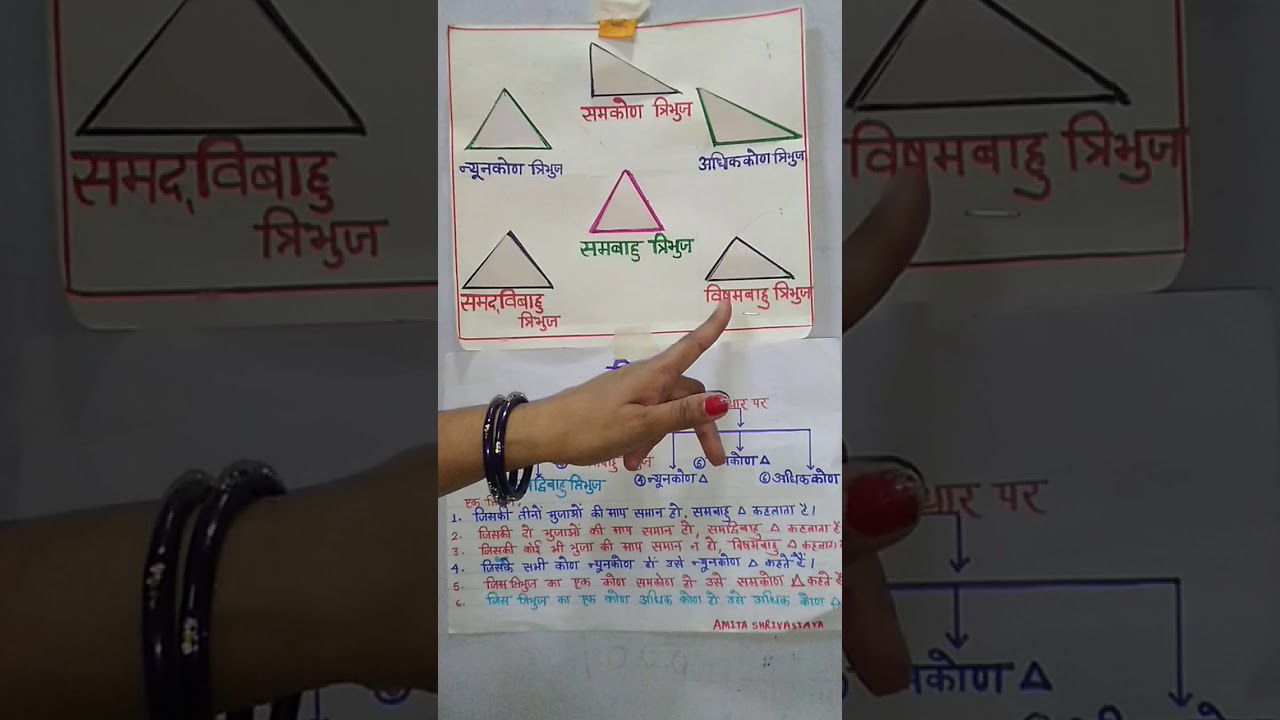 समकोण त्रिभुज
न्यूनकोण त्रिभुज
अधिककोण त्रिभुज
समबाहु त्रिभुज
समद्विबाहु
त्रिभुज
विषमबाहु त्रिभुज
पर
④ न्यूनकोण △
⑤ कोण △
⑥ अधिककोण
द्विबाहु त्रिभुज
एक
1. जिसकी तीनों भुजाओं की माप समान हो, समबाहु △ कहलाता है।
2. जिसकी दो भुजाओं की माप समान हो, समद्विबाहु △ कहलाता है
3. जिसकी कोई भी भुजा की माप समान न हो, विषमबाहु △ कहलाता
4. जिसके सभी कोण न्यूनकोण हों उसे न्यूनकोण △ कहते हैं।
5. जिस त्रिभुज का एक कोण समकोण हो उसे समकोण △ कहते
6. जिस त्रिभुज का एक कोण अधिक कोण हो उसे अधिक कोण △
AMITA SHRIVASTAVA